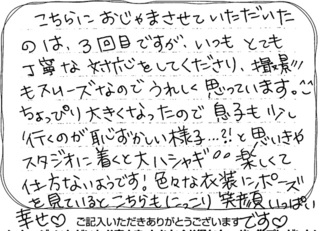 こちらにおじゃまさせていただいた
のは、3回目ですが、いつもとても
丁寧な対応をしてくださり、撮影
もスムーズなのでうれしく思っています。^^
ちょっぴり大きくなったので息子も少し
行くのが恥ずかしい様子…?!と思いきや
スタジオに着くと大ハシャギ 楽しくて
仕方ないようです!色々な衣装にポーズ
を見ているとこちらもにっこり 笑顔いっぱい
幸せ♡ ご記入いただきありがとうございます です♡